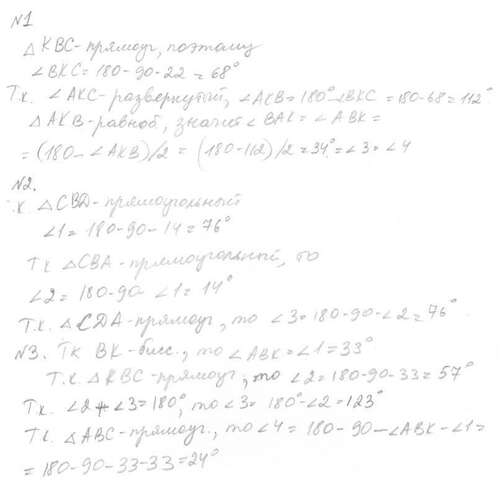 №1
△KBC-прямоуг, поэтому
∠BKC = 180-90-22 = 68°
Т.к. ∠AKC-развернутый, ∠AKB = 180°-∠BKC = 180-68 = 112°
△AKB-равноб, значит ∠BAK = ∠ABK =
= (180-∠AKB)/2 = (180-112)/2 = 34° = ∠3 = ∠4
№2.
к △CBD-прямоугольный
∠1 = 180-90-14 = 76°
Тк △CBA-прямоугольный, то
∠2 = 180-90-∠1 = 14°
Т.к. △CDA-прямоуг, то ∠3 = 180-90-∠2 = 76°
№3. Тк BK-бисс., то ∠ABK = ∠1 = 33°
Т.к. △KBC-прямоуг, то ∠2 = 180-90-33 = 57°
Т.к. ∠2+∠3 = 180°, то ∠3 = 180°-∠2 = 123°
Т.к. △ABC-прямоуг., то ∠4 = 180-90-∠ABK-∠1 =
= 180-90-33-33 = 24°